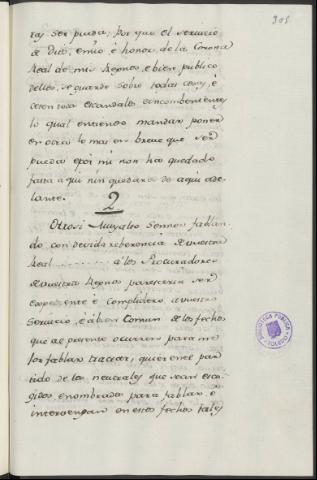 305
ras ser pueda; Por que el servicio
de Dios, e mio é honor de la Corona
Real de mis Regnos, e bien publico
dellos, se guarde sobre todas cosas, é
cesen todos escandalos é inconbenientes
lo qual entiendo mandar poner
en obra lo mas en breve que ser
pueda é por mi non ha quedado
fasta aqui nin quedará de aqui ade-
lante.
2
Otrosi Muy alto Sennor fablan-
do con devida reberencia á vuestra
Real ......... á los Procuradores
de vuestros Regnos paresceria ser
espediente é complidero a vuestro
Servicio, é á bien Comun de los fechos
que al presente ocurren para me-
lor fablar, tractar, que rente par-
tido de los neutrales que sean esco-
gidos, e nombrados para fablar, é
intervengan en estos fechos tales
BIBLIOTECA PÚBLICA
TOLEDO